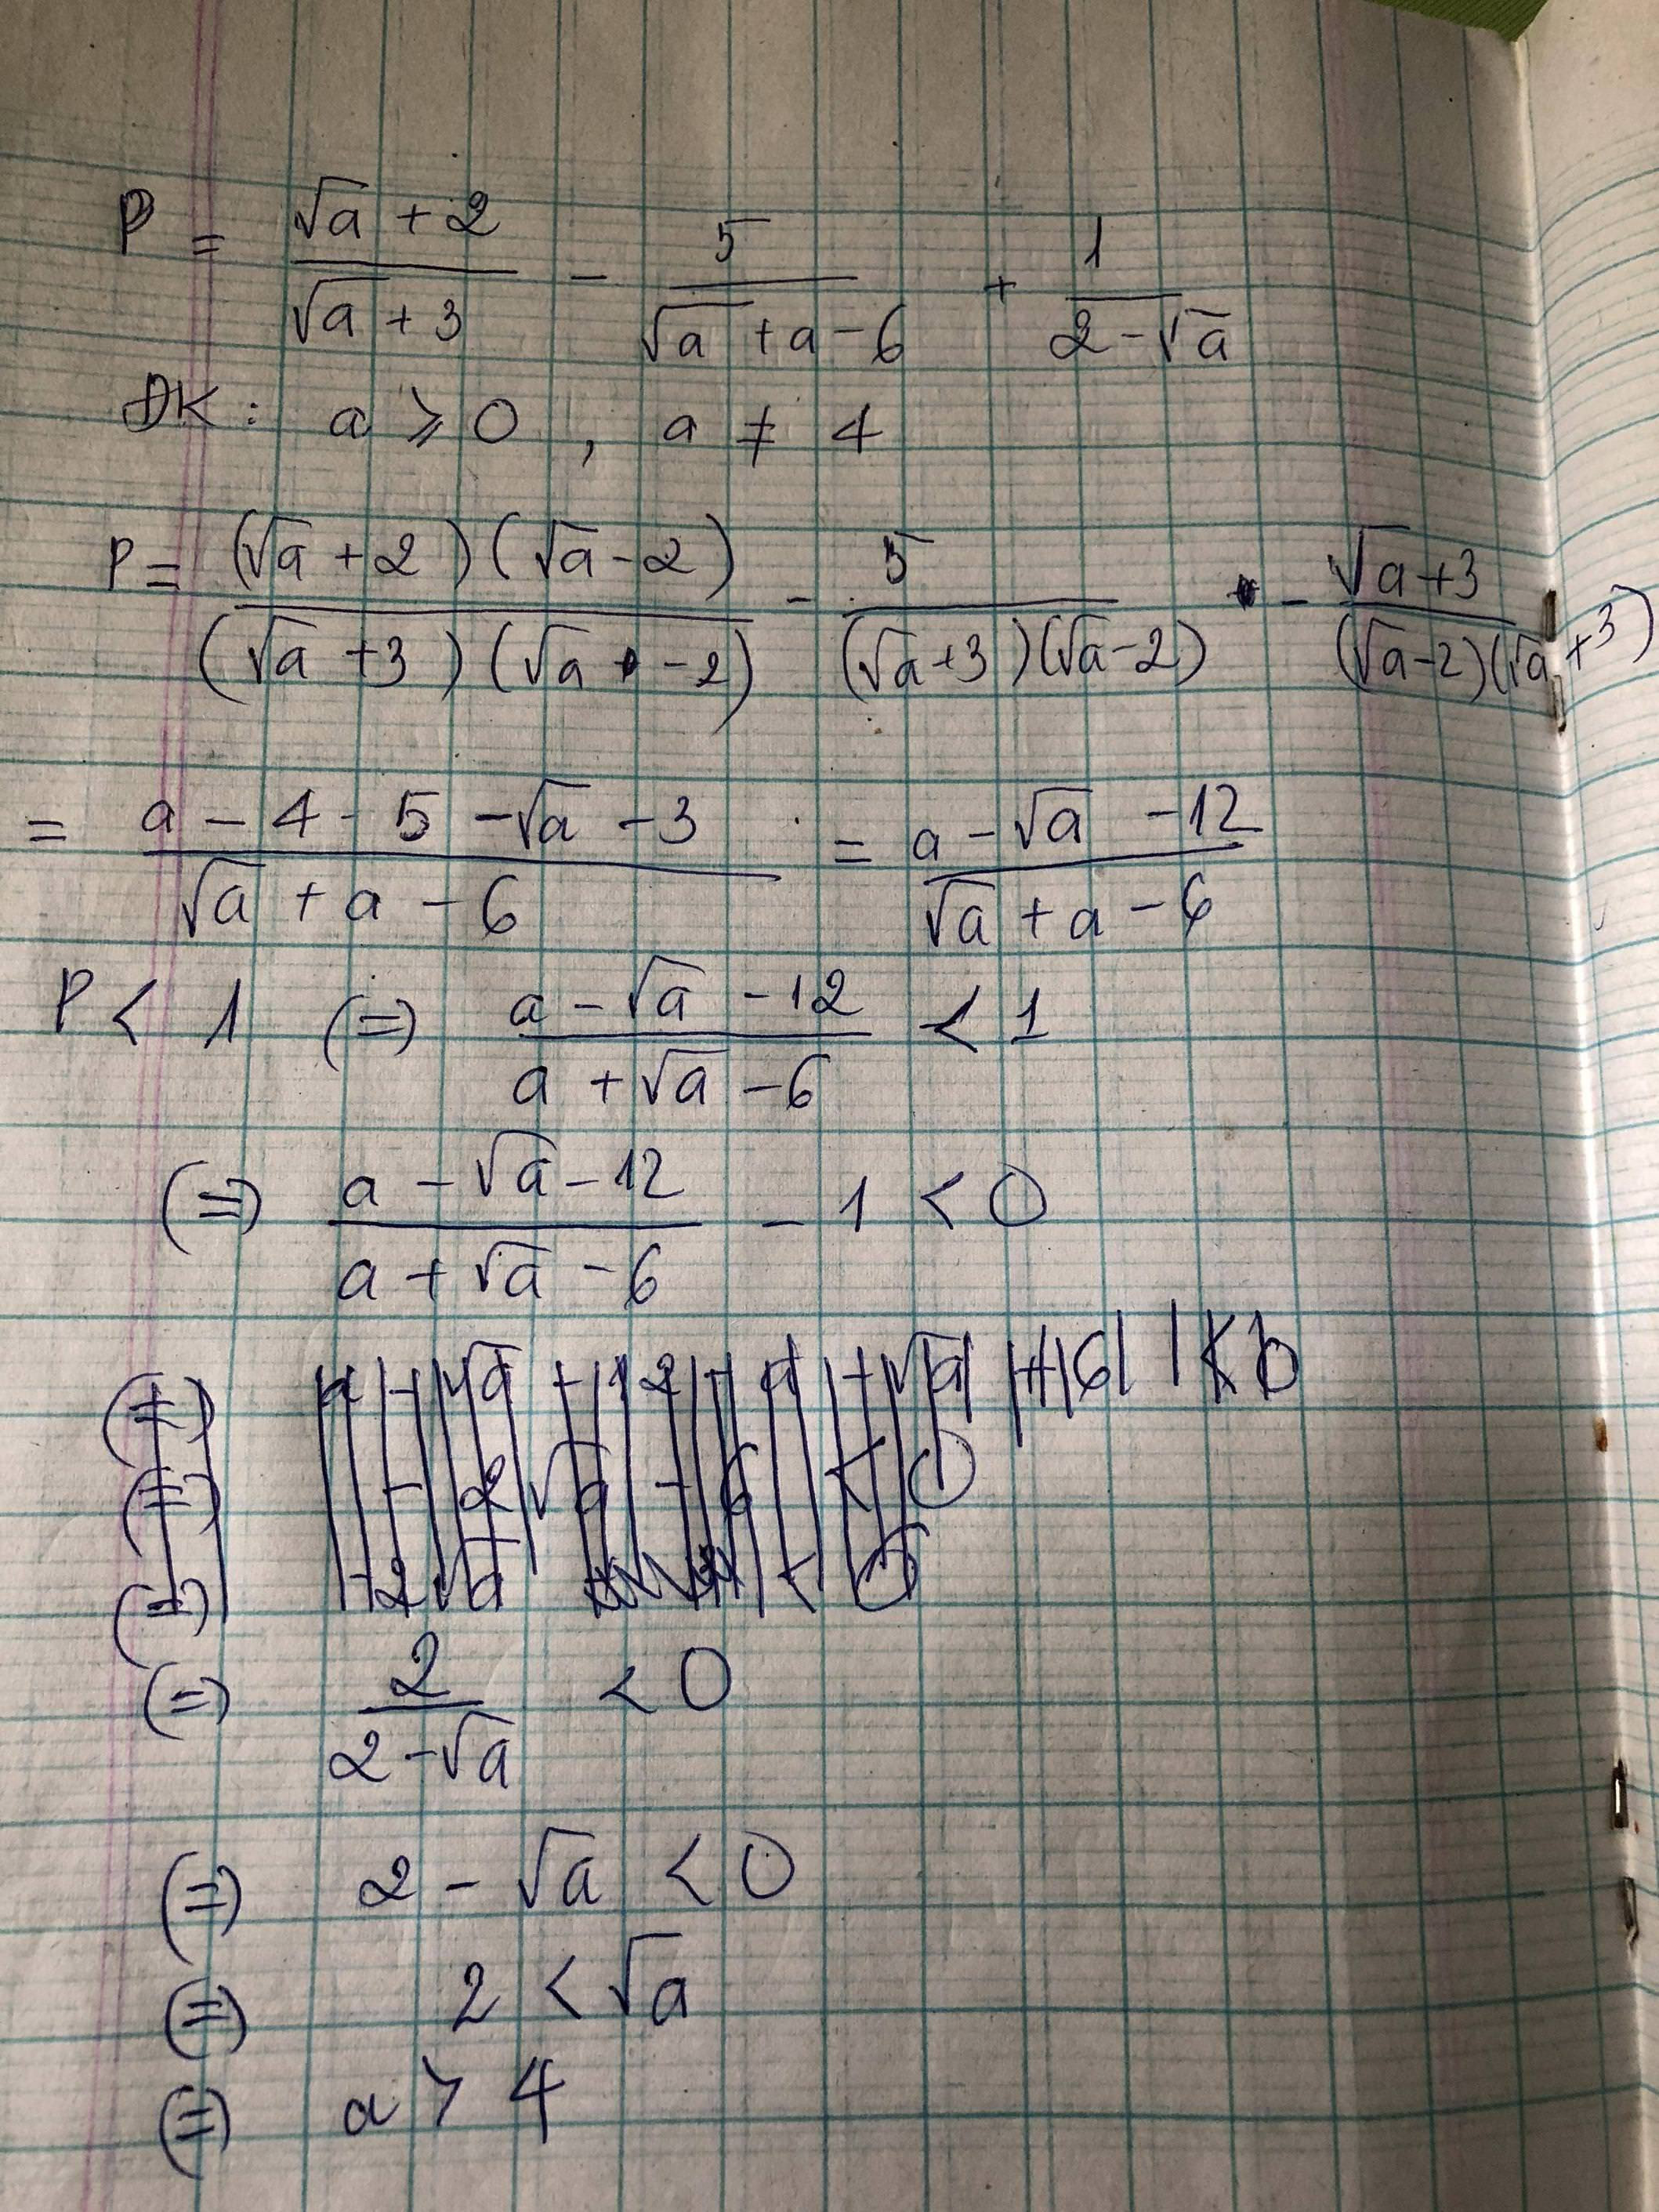 P = (√a + 2)/(√a + 3) - 5/(√a + a - 6) + 1/(2 - √a)
ĐK: a ⩾ 0 , a ≠ 4
P = (√a + 2)(√a - 2)/(√a + 3)(√a - 2) - 5/(√a + 3)(√a - 2) - √a + 3/(√a - 2)(√a + 3)
= (a - 4 - 5 - √a - 3)/(√a + a - 6) = (a - √a - 12)/(√a + a - 6)
P < 1 (=) (a - √a - 12)/(a + √a - 6) < 1
(=) (a - √a - 12)/(a + √a - 6) - 1 < 0
(=) a - √a - 12 - a - √a + 6 < 0
(=) - 2√a - 6 < 0
(=) - 2√a < 
(=) 2/(2 - √a) < 0
(=) 2 - √a < 0
(=) 2 < √a
(=) a > 4